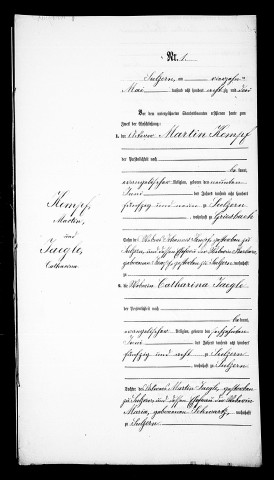 Nr. 1.
Sulzern, am vierzehn
Mai tausend acht hundert acht zig und
Vor dem unterzeichneten Standesbeamten erschienen heute zum
Zwecke der Eheschließung:
1. der Martin Kempf
der Persönlichkeit nach
kannt,
evangelischer Religion, geboren den neunten
Juni des Jahres tausend acht hundert
fünfzig und neun zu Sulzern
, wohnhaft zu Griesbach
Kempf,
Martin,
und
Jaegle,
Catharina
Sohn des Johannes Kempf gestorben zu
Sulzern, und dessen Ehefrau der Barbara
geborenen gestorben zu Sulzern wohnhaft
zu
2. die Catharina Jaegle
der Persönlichkeit nach
kannt,
evangelischer Religion, geboren den
Juni des Jahres tausend acht hundert
fünfzig und acht zu Sulzern
, wohnhaft zu Sulzern
Tochter des Martin Jaegle, gestorben
zu Sulzern und dessen Ehefrau der
Maria, geborenen Schwartz, wohnhaft
zu Sulzern